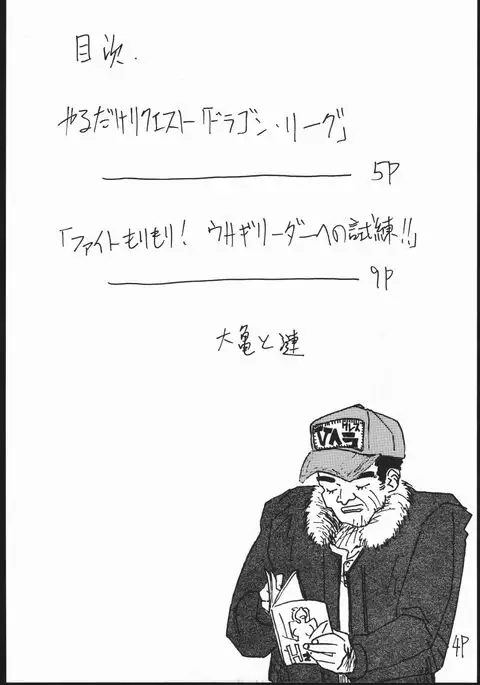 目次.
やるだけリクエスト「ドラゴン・リーグ」
5P
「ファイトもりもり! ウサギリーダーへの試練!!」
9P
大亀と漣
4P